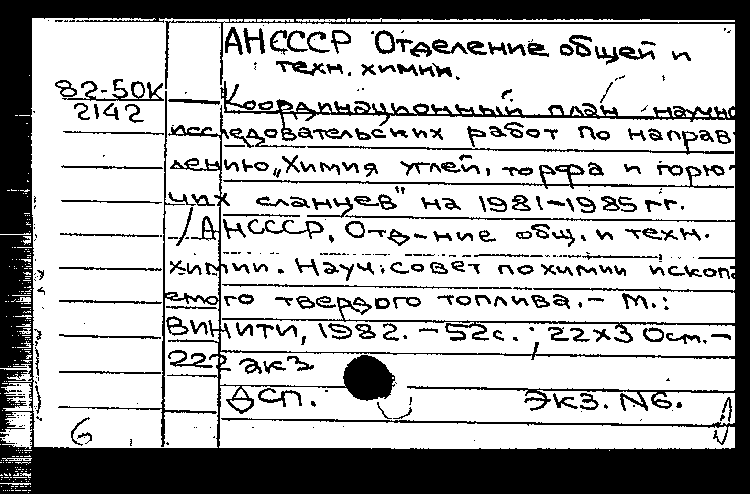 АНСССР Отделение общей и
техн. химии.
82-50К
2142
Координационный план научно
исследовательских работ по направ
лению „Химия углей, торфа и горю-
чих сланцев" на 1981-1985 гг.
/АНСССР, Отд-ние общ. и техн.
химии. Науч. совет по химии ископа
емого твердого топлива. - М.:
ВИНИТИ, 1982. - 52с.; 22х30см. -
222 экз
ДСП. Экз. №6.
6